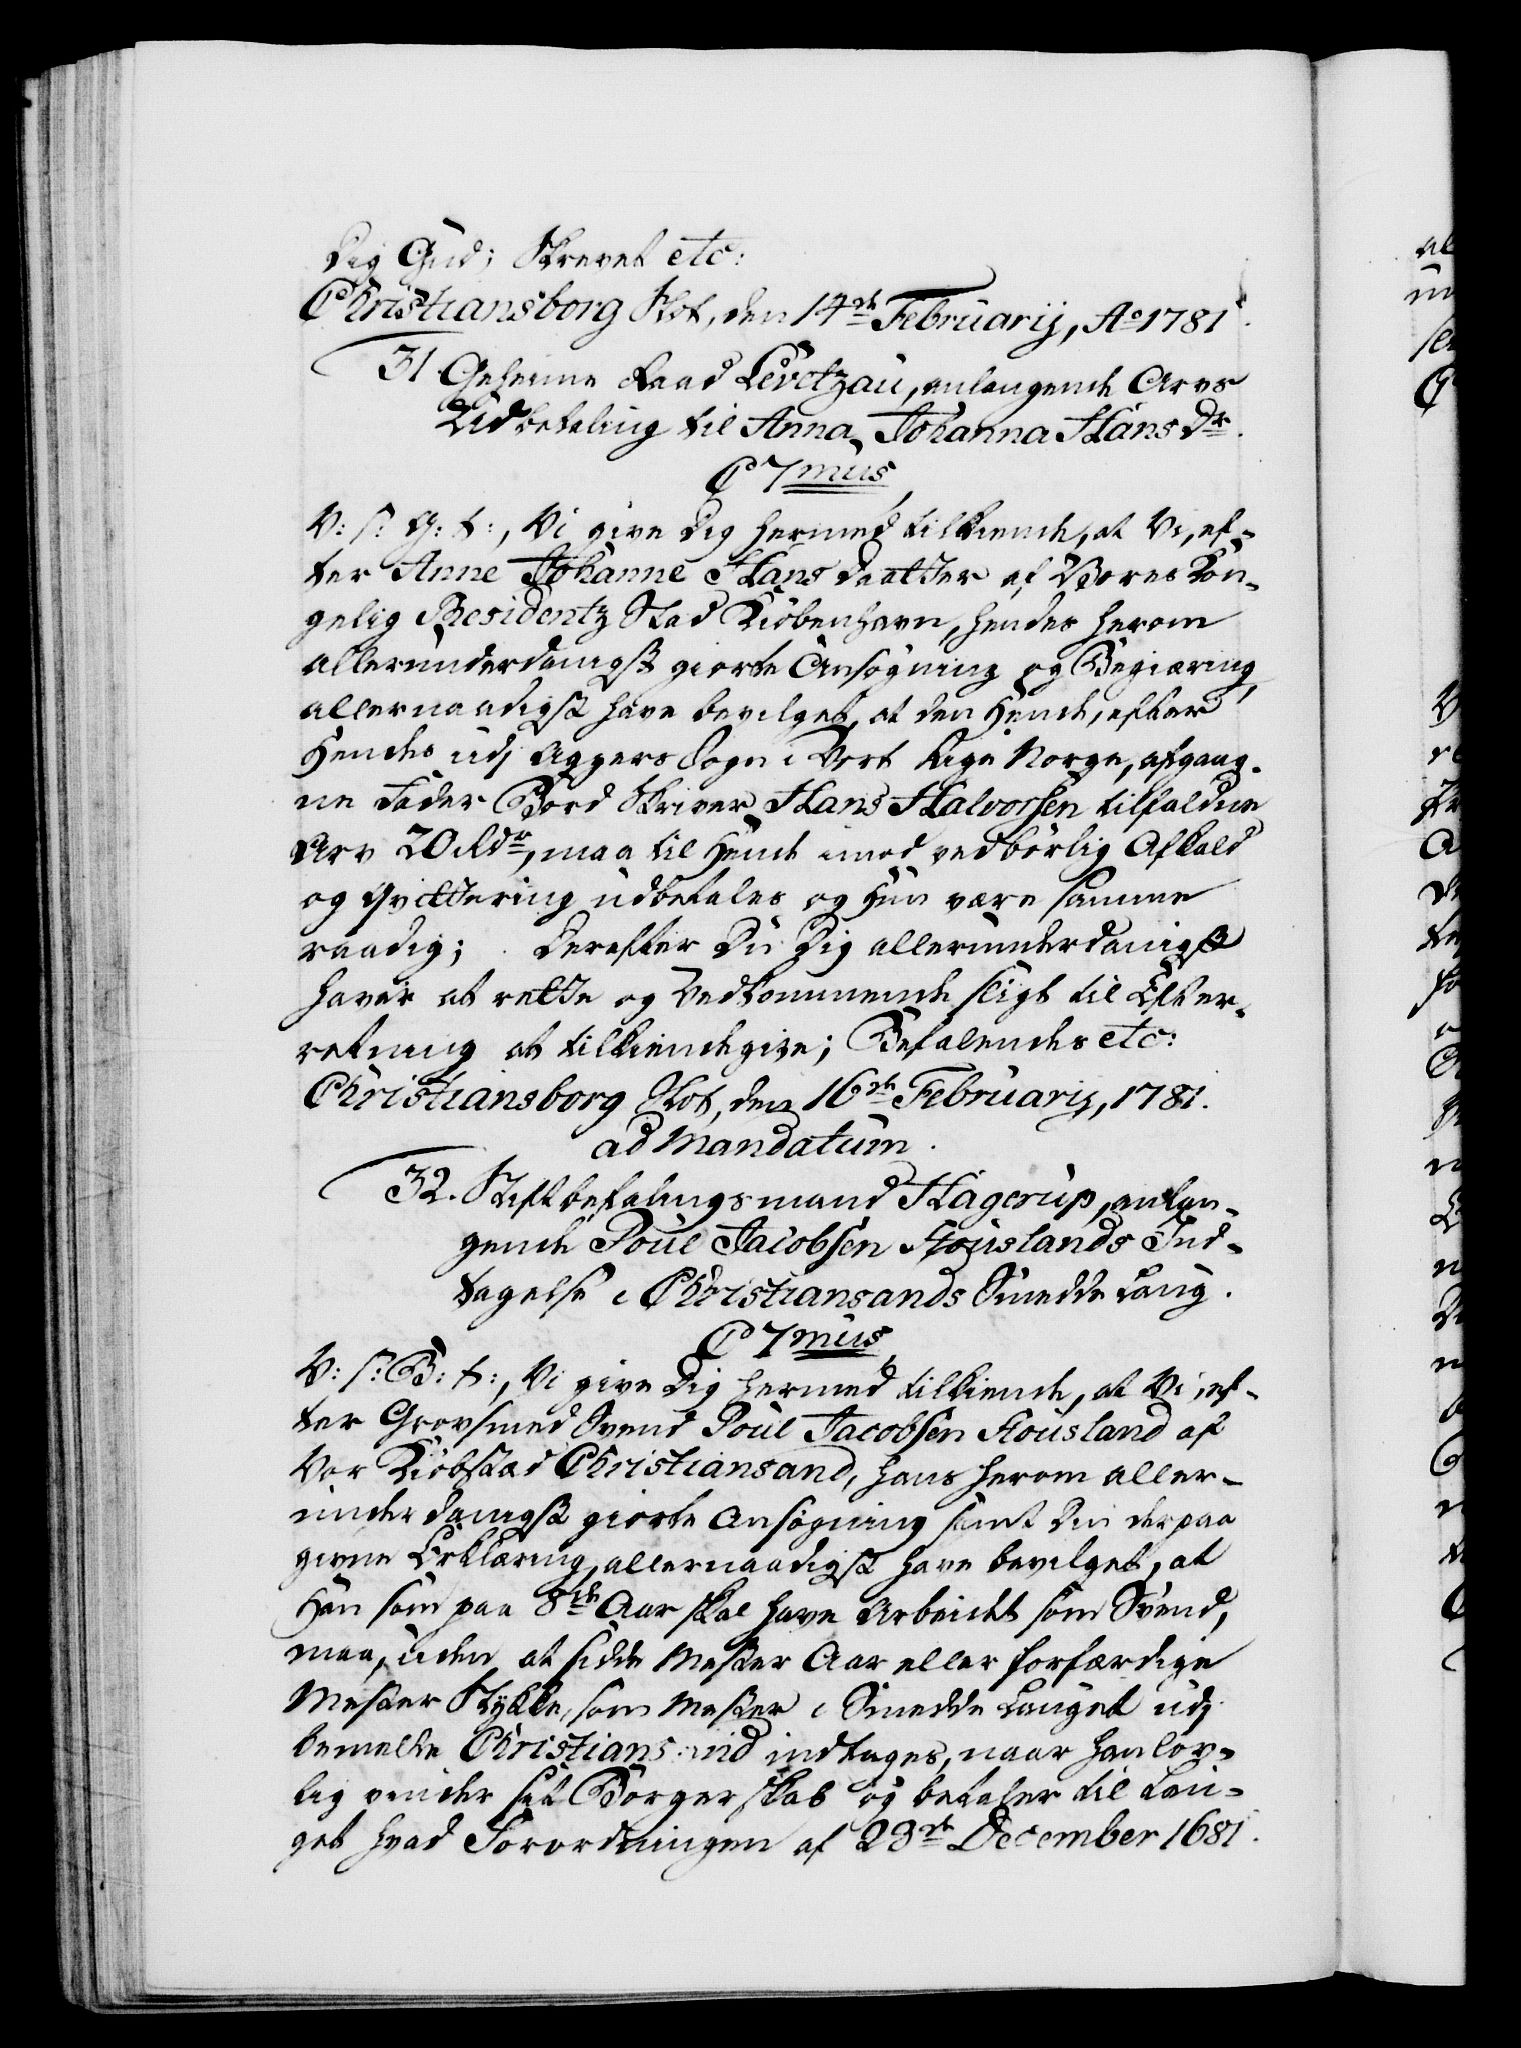 Dig Gud; Skrevet etc:
Christiansborg Slot, den 14de Februarij, Ao 1781.
31. Geheime Raad Levetzau, anlangende Arvs
Udbetaling til Anna Johanna Hans Dr.
C7mus
V: S: G: t:, Vi give Dig hermed tilkiende, at Vi, ef-
ter Anne Johanne Hans Daatter af Vores Kon-
gelig Residentz Stad Kiöbenhavn, hendes herom
allerunderdanigst giorte Ansögning og Begiæring,
allernaadigst have bevilget, at den Hende, efter
Hendes udj Aggers Sogn i Vort Rige Norge, afgang-
ne Fader Bord Skriver Hans Halvorssen tilfaldne
Arv 20 Rdr, maa til Hende imod vedbörlig Afkald
og Qvittering udbetales og Hun være samme
raadig; Derefter Du Dig allerunderdanigst
haver at rette og Vedkommende sligt til Efter-
retning at tilkiendegive; Befalendes etc:
Christiansborg Slot, den 16de Februarij, 1781.
ad Mandatum.
32. Stiftbefalingsmand Hagerup, anlan-
gende Poul Jacobsen Flouslands Ind-
tagelse i Christiansands Smedde Laug.
C7mus
V: S: B: t:, Vi give Dig hermed tilkiende, at Vi, ef-
ter Grovsmed Svend Poul Jacobsen Flousland af
Vor Kiöbstad Christiansand, hans herom aller-
underdanigst giorte Ansögning samt Din derpaa
givne Erklæring, allernaadigst have bevilget, at
Han som paa 8de Aar skal have Arbeidet som Svend,
maa, uden at sidde Mester Aar eller forfærdige
Mester Stykke, som Mester i Smedde Lauget udj
bemelte Christiansand indtages, naar han lov-
lig vinder sit Borgerskab og betaler til Lau-
get hvad Forordningen af 23de December 1681.